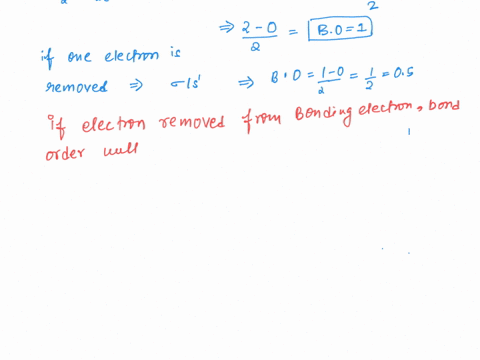 2
⇒ 2-0/2 = B.O=1
if one electron is
removed ⇒ σ1s¹ ⇒ B.O = 1-0/2 = 1/2 = 0.5
if electron removed from Bonding electron, bond
order will